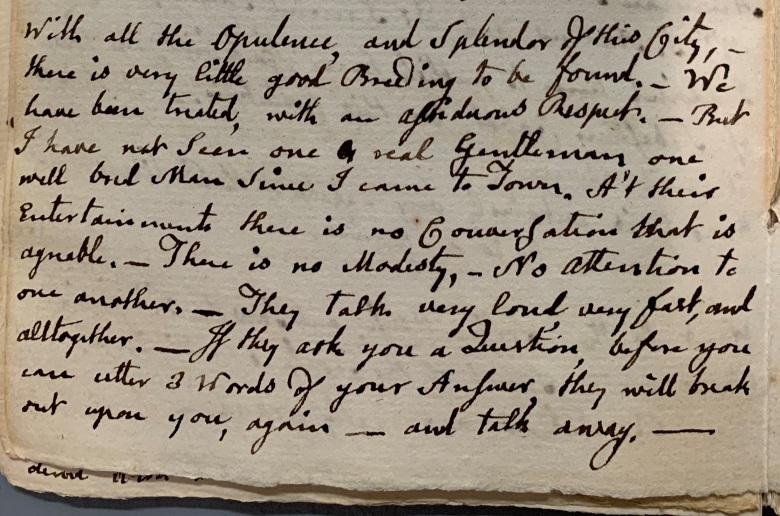 With all the Opulence, and Splendor of this City, —
there is very little good Breeding to be found. — We
have been treated, with an assiduous Respect. — But
I have not seen one real Gentleman, one
well bred Man since I came to Town. At their
Entertainments there is no Conversation that is
agreable. — There is no Modesty, — No Attention to
one another. — They talk very loud, very fast, and
alltogether. — If they ask you a Question, before you
can utter 3 Words of your Answer, they will break
out upon you, again — and talk away. —